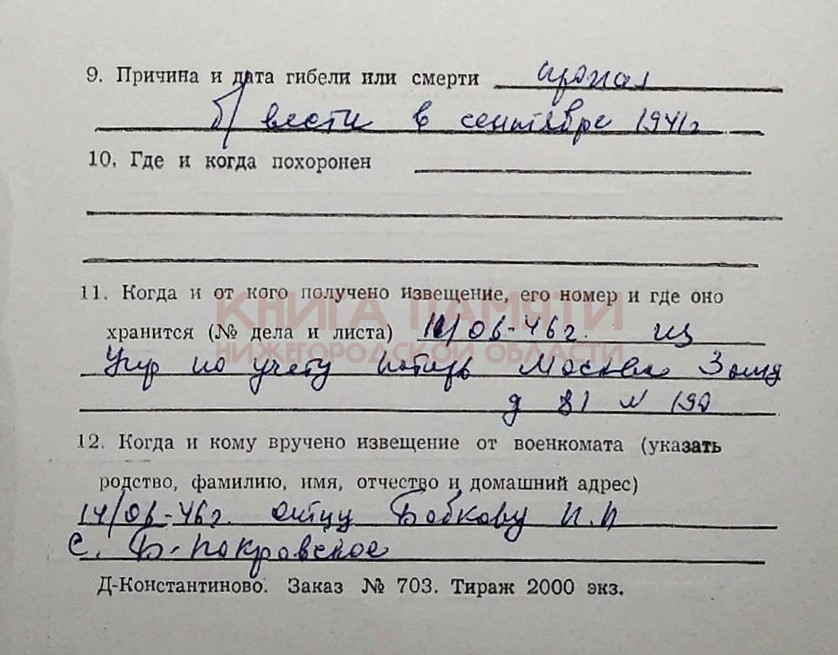 9. Причина и дата гибели или смерти пропал
б/ вести в сентябре 1941г
10. Где и когда похоронен
11. Когда и от кого получено извещение, его номер и где оно
КНИГА ПАМЯТИ
хранится (№ дела и листа) 11/06-46г. из
НИЖЕГОРОДСКОЙ ОБЛАСТИ
Упр по учету потерь Москва
д 81 л 190
12. Когда и кому вручено извещение от военкомата (указать
родство, фамилию, имя, отчество и домашний адрес)
14/06-46г. отцу Бобкову И. П
с. Б-Покровское
Д-Константиново. Заказ № 703. Тираж 2000 экз.